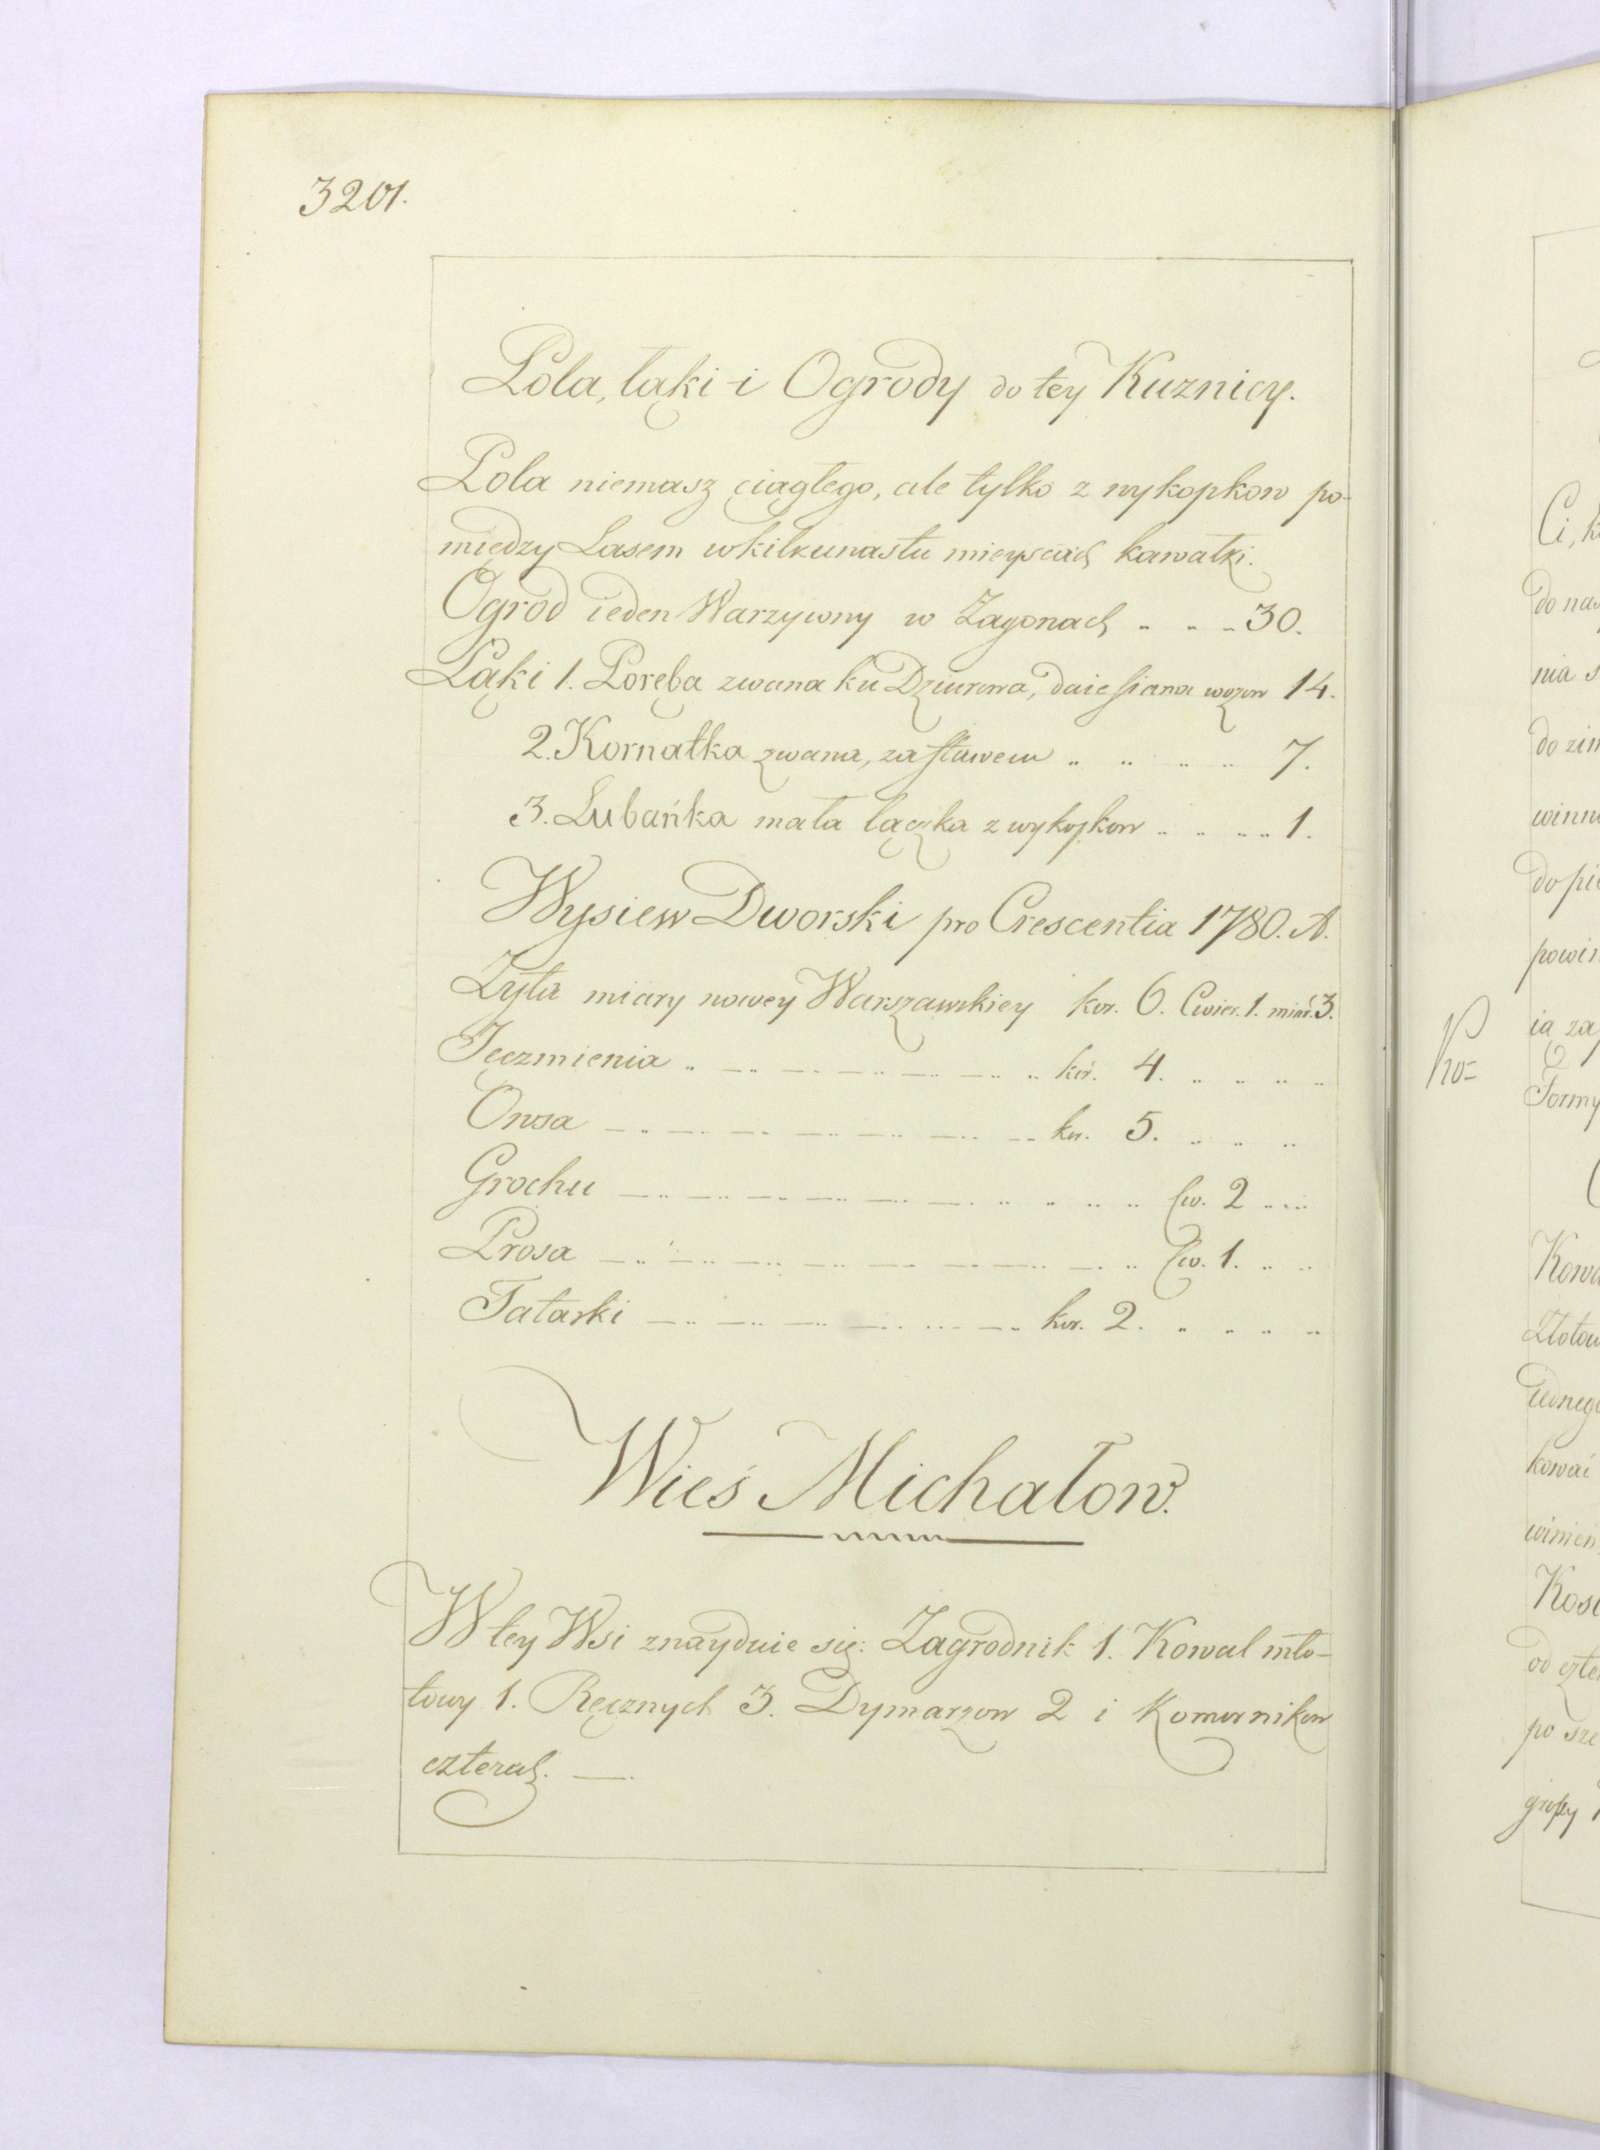 3201.
Pola, łąki i Ogrody do tey Kuznicy.
Pola niemasz ciągłego, ale tylko z wykopkow po-
między Lasem w kilkunastu mieyscach kawałki.
Ogrod ieden Warzywny w Zagonach 30.
Łąki 1. Poręba zwana ku Dziurowa, daie siana wozow 14.
2. Kornatka zwana, za stawem 7.
3. Lubańka mała łączka z wykopkow 1.
Wysiew Dworski pro Crescentia 1780. A.
Zyta miary nowey Warszawskiey kor. 6. Cwier. 1. miar. 3.
Jęczmienia kor. 4.
Owsa kor. 5.
Grochu Cw. 2
Prosa Cw. 1.
Tatarki kor. 2.
Wieś Michałow.
W tey Wsi znayduie się: Zagrodnik 1. Kowal mło-
towy 1. Ręcznych 3. Dymarzow 2 i Komornikow
czterech.